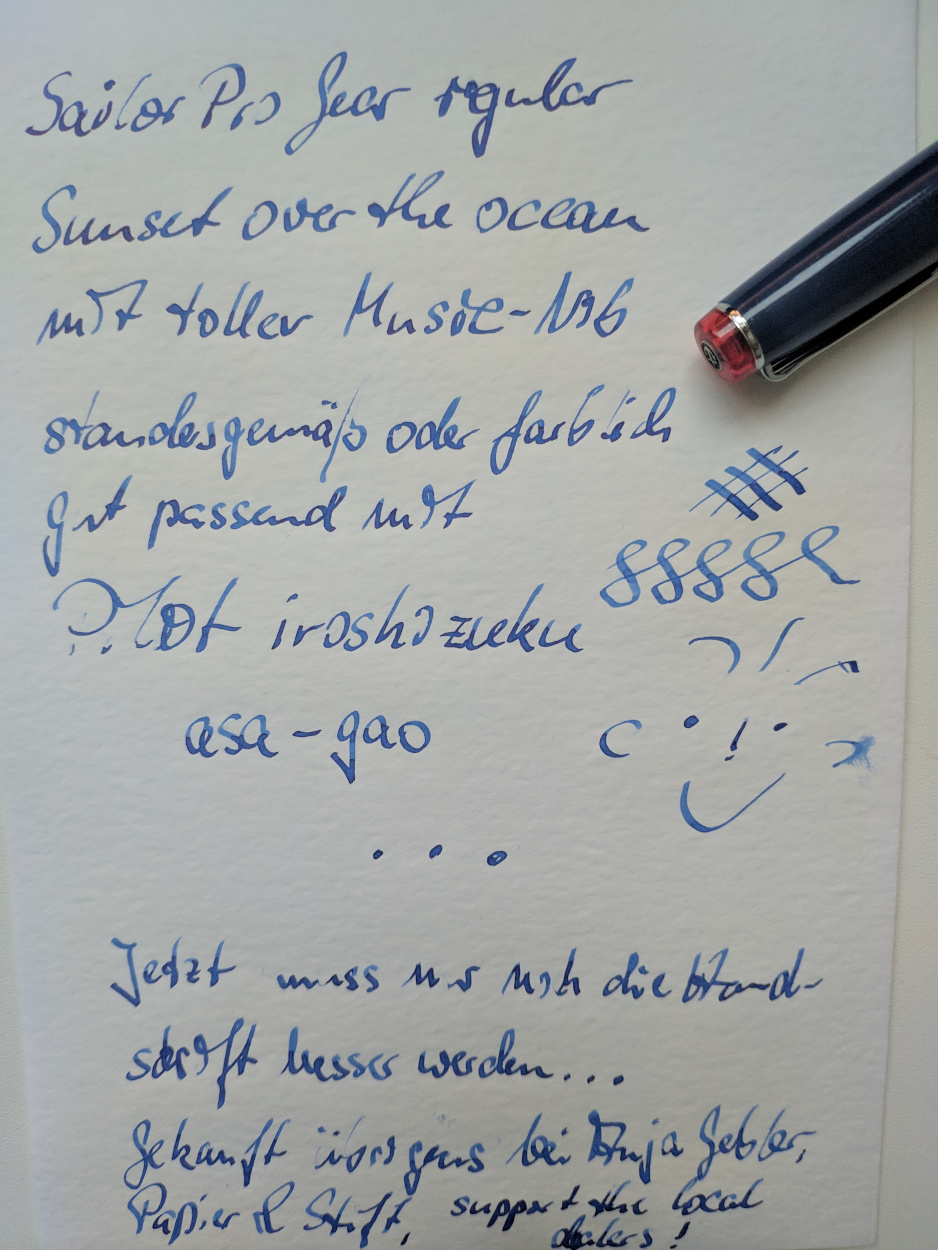 Sailor Pro Gear regular
Sunset over the ocean
mit toller Music-Nib
standesgemäß oder farblich
gut passend mit
Pilot iroshizuku
asa-gao
...
Jetzt muss nur noch die Hand-
schrift besser werden...
Gekauft übrigens bei Anja
Papier & Stift, support the local
dealers!